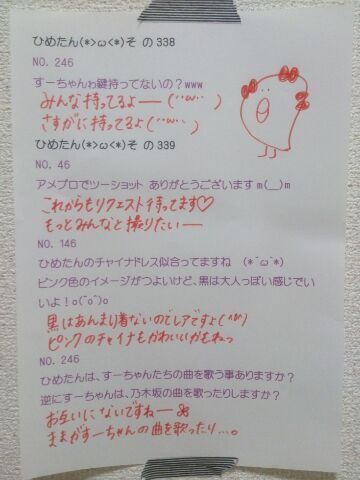 ひめたん(*>ω<*)その338
NO. 246
すーちゃんゎ鍵持ってないの？www
みんな持ってるよー(´･ω･｀)
さすがに持ってるよ(´･ω･｀)
ひめたん(*>ω<*)その339
NO. 46
アメプロでツーショット ありがとうございますm(__)m
これからもリクエスト待ってます♡
もっとみんなと撮りたいー
NO. 146
ひめたんのチャイナドレス似合ってますね (*^ω^*)
ピンク色のイメージがつよいけど、黒は大人っぽい感じでい
いよ！o(^o^)o
黒はあんまり着ないのでレアですよ(^ω^)
ピンクのチャイナもかわいいかもねっ
NO. 246
ひめたんは、すーちゃんたちの曲を歌う事ありますか？
逆にすーちゃんは、乃木坂の曲を歌ったりしますか？
お互いにないですねー
きまがすーちゃんの曲を歌ったり…。